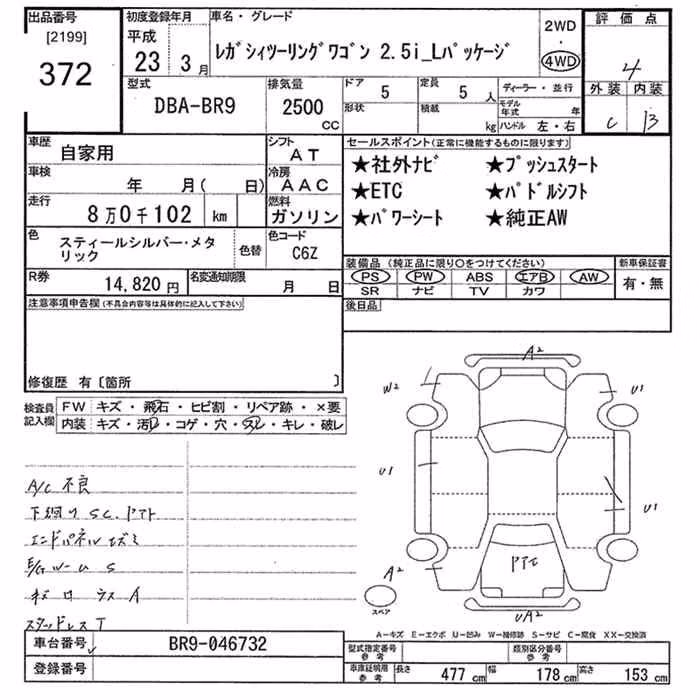 出品番号
[2199]
372
初度登録年月
平成
23 3月
車名・グレード
レガシィツーリングワゴン 2.5i_Lパッケージ
2WD
・
4WD
評価点
4
外装 内装
C B
型式
DBA-BR9
排気量
2500
CC
ドア 5
形状
定員 5 人
積載 kg
ディーラー・並行
モデル年式 年
ハンドル 左・右
車歴
自家用
シフト
AT
車検
年 月( 日)
冷房
AAC
走行
8万0千102 km
燃料
ガソリン
色
スティールシルバー・メタ
リック
色替
色コード
C6Z
R券
14,820円
名変通知期限
月 日
セールスポイント(正常に機能するものに限ります)
★社外ナビ ★プッシュスタート
★ETC ★パドルシフト
★パワーシート ★純正AW
装備品(純正品に限り○をつけてください)
PS PW ABS エアB AW
SR ナビ TV カワ
新車保証書
有・無
後日品
注意事項申告欄(不具合内容等は具体的に記入して下さい)
修復歴 有〔箇所 〕
検査員
記入欄
FW キズ・飛石・ヒビ割・リペア跡・×要
内装 キズ・汚レ・コゲ・穴・スレ・キレ・破レ
A/C 不良
下廻り SC.
エンドパネル
スタッドレス T
A2
W2
U1
U1
U1
A2
UA2
スペア
A-キズ E-エクボ U-凹み W-補修跡 S-サビ C-腐食 XX-交換済
車台番号 BR9-046732
登録番号
型式指定番号
参考
類別区分番号
参考
車庫証明用
参考
長さ 477cm 幅 178cm 高さ 153cm